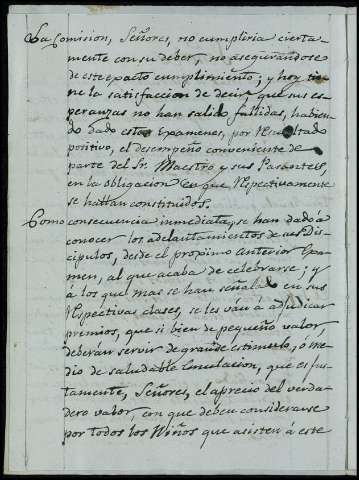 La Comision, Señores, no cumpliria cierta-
mente con su deber, no asegurandose
de este exacto cumplimiento; y hoy tie-
ne la satisfaccion de decir que sus es-
peranzas no han salido fallidas, habien-
do dado estos Examenes, por Resultado
positivo, el desempeño conveniente de
parte del Sr. Maestro y sus Pasantes,
en la obligacion en que Respectivamente
se hallan constituidos.
Como consecuencia inmediata, se han dado á
conocer los adelantamientos de los Dis-
cipulos, desde el proximo Anterior Exa-
men, al que acaba de celebrarse; y
á los que mas se han señalado en sus
Respectivas clases, se les ván á adjudicar
premios, que si bien de pequeño valor,
deberán servir de grande estimulo, ó me-
dio de saludable Emulacion, que es jus-
tamente, Señores, el aprecio del verda-
dero valor, con que deben considerarse
por todos los Niños que asisten á este